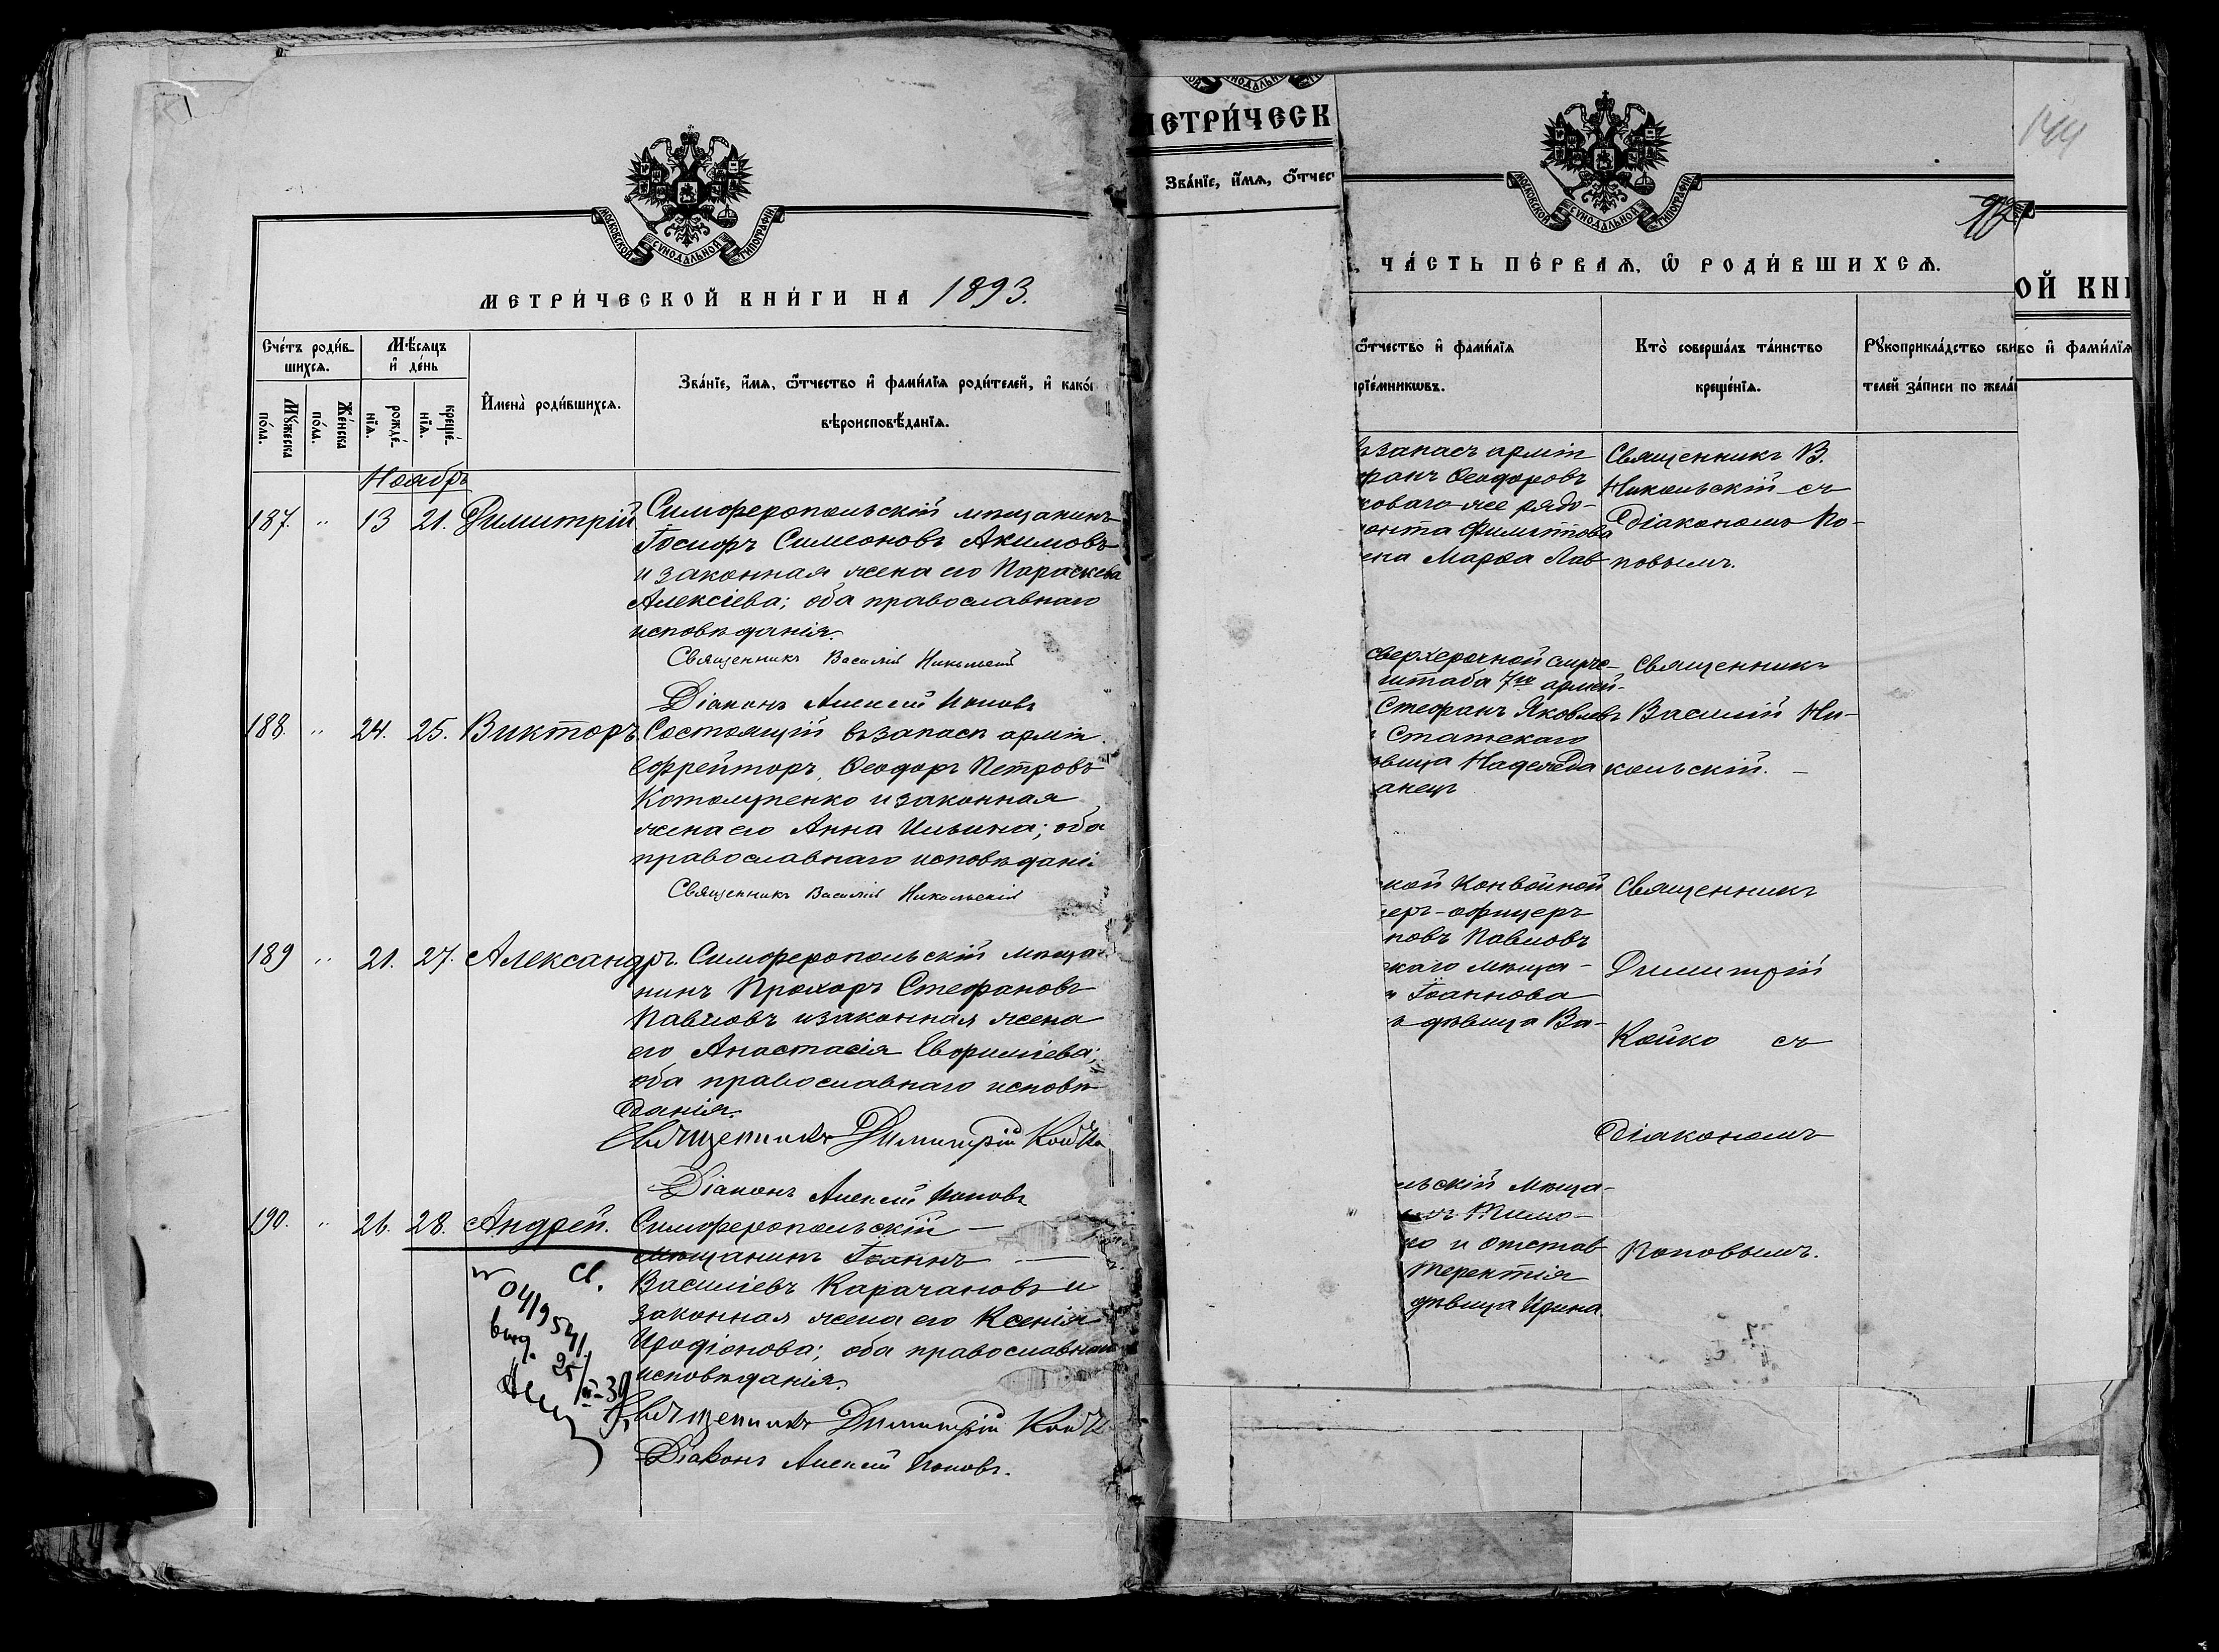 МОСКОВСКОЙ СѴНОДАЛЬНОЙ ТИПОГРАФІИ
МЕТРИ́ЧЕСКОЙ КНИ́ГИ НА 1893.
Сче́тъ роди́в-
шихсѧ.
Мѣ́сѧцъ
и҆ де́нь
Мꙋ́жеска
по́ла.
Же́нска
по́ла.
рожде́-
нїѧ.
креще́-
нїѧ.
И҆мена̀ роди́вшихсѧ.
Зва́нїе, и҆́мѧ, ѻ҆́тчество и҆ фами́лїѧ роди́телей, и҆ како́
вѣроисповѣ́данїѧ.
Ноябрь
187. " 13 21. Димитрій Симферопольскій мѣщанинъ
Іосифъ Симеоновъ Акимовъ
и законная жена его Параскева
Алексіева; оба православнаго
исповѣданія.
Священникъ Василій Никольскій
Діаконъ Алексій Поповъ
188. " 24. 25. Викторъ. Состоящій въ запасѣ арміи
Ефрейторъ, Ѳеодоръ Петровъ
и законная
жена его Анна Ильина; оба
православнаго исповѣдані
Священникъ Василій Никольскій
189 " 21. 27. Александръ. Симферопольскій мѣща
нинъ Прохоръ Стефановъ
Павловъ и законная жена
его Анастасія
оба православнаго исповѣ
данія.
Священникъ Димитрій Койко
Діаконъ Алексій Поповъ
190. " 26. 28. Андрей. Симферопольскій
мѣщанинъ Іоаннъ
Василіевъ Карачановъ и
законная жена его Ксенія
Иродіонова; оба православнаго
исповѣданія.
Священникъ Димитрій Койко
Діаконъ Алексій Поповъ.
св.
041954
выд.
МЕТРИ́ЧЕСК
Зва́нїе, и҆́мѧ, ѻ҆́тчес
МОСКОВСКОЙ СѴНОДАЛЬНОЙ ТИПОГРАФІИ
144
ЧА́СТЬ ПЕ́РВАѦ, Ѡ҆ РОДИ́ВШИХСѦ.
ОЙ КНИ
ѻ҆́тчество и҆ фами́лїѧ
прїе́мникѡвъ.
Кто̀ соверша́лъ та́инство
креще́нїѧ.
Рꙋкоприкла́дство сви
телей за́писи по жела́
во и҆ фами́лїѧ
въ запасъ арміи
фанъ Ѳеодоровъ
коваго-же рядо-
онта Филиппова
ена Марѳа Лав
Священникъ В.
Никольскій съ
Діакономъ По-
повымъ.
сверхсрочной службы
штаба 7го армей-
Стефанъ Яковлевъ
Статскаго
вица Надежда
анецъ
Священникъ
Василій Ни-
кольскій. –
кой Конвойной
еръ-офицеръ
новъ Павловъ
скаго мѣща-
Іоаннова
дѣвица Ва-
Священникъ
Димитрій
Койко съ
Діакономъ
Поповымъ.
льскій мѣща-
Тимо-
ко и отстав
Терентія
дѣвица Ирина.